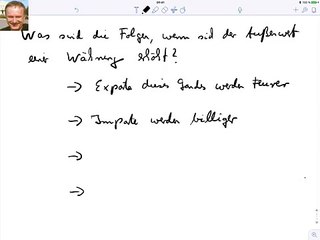 Was sind die Folgen, wenn sich der Außenwert
einer Währung erhöht?
→ Exporte dieses Landes werden teurer
→ Importe werden billiger
→
→